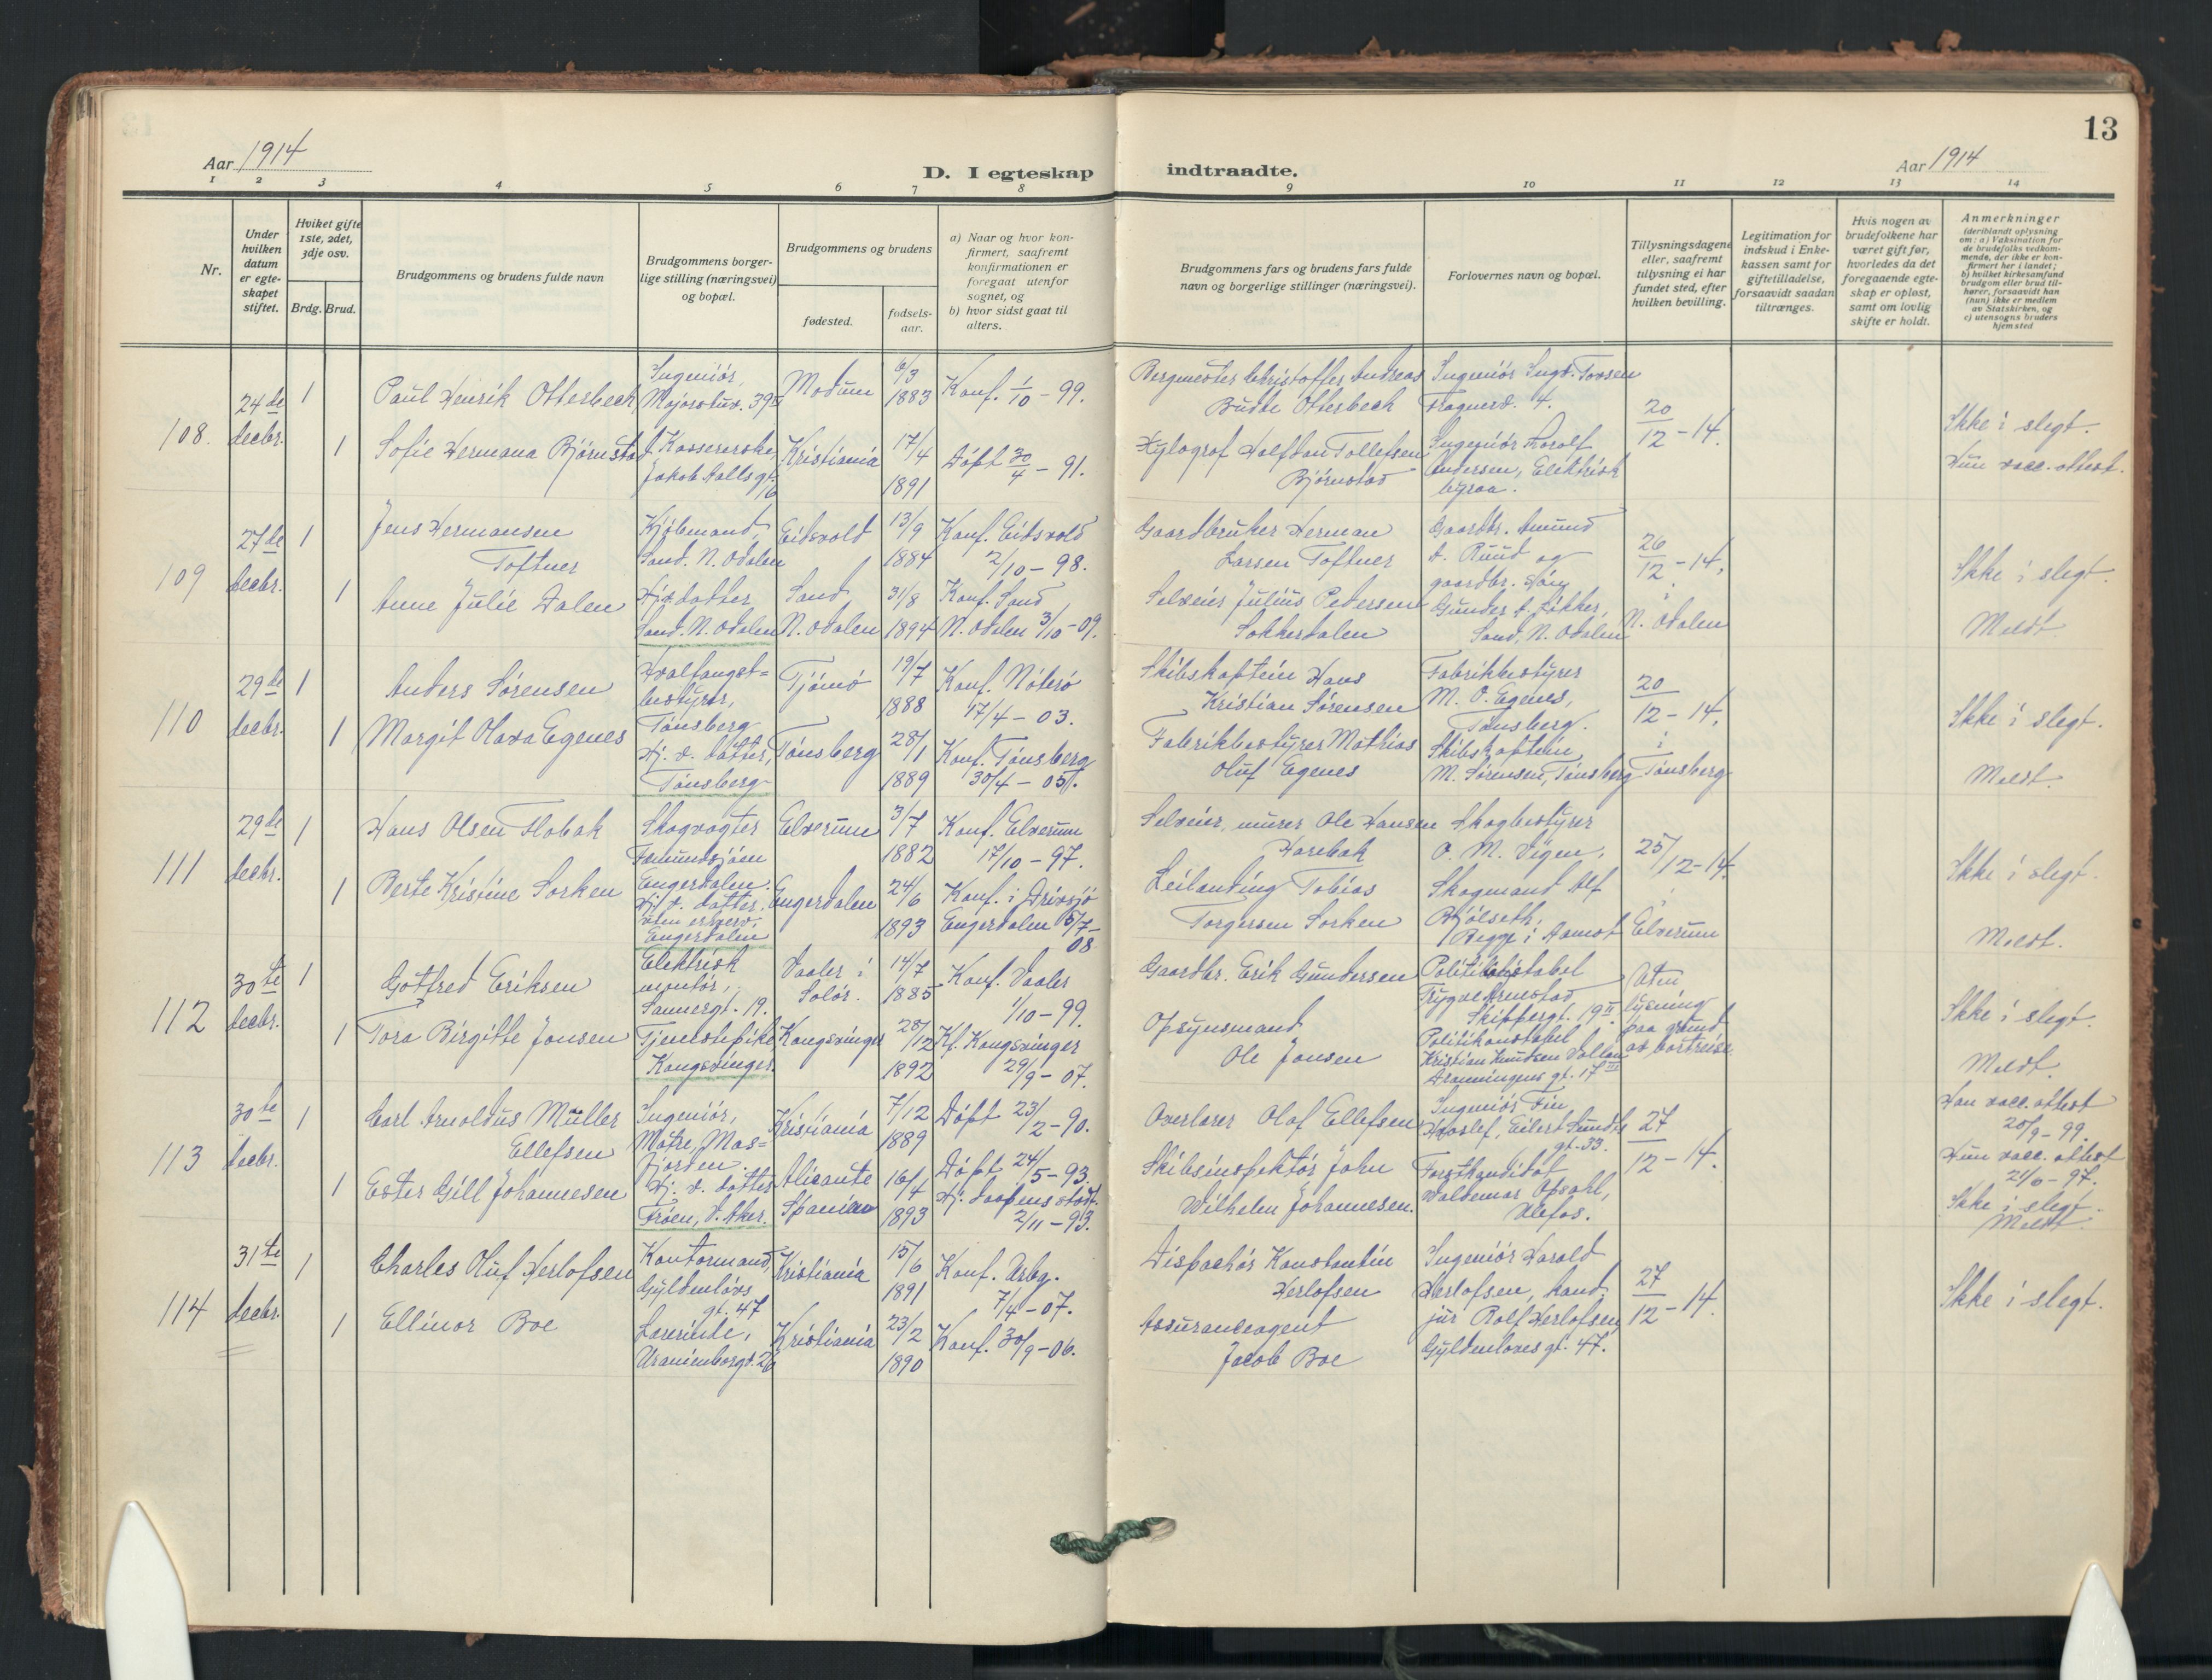 13
Aar 1914
D. I egteskap indtraadte.
Aar 1914
1 2 3 4 5 6 7 8 9 10 11 12 13 14
Nr.
Under hvilken datum er egteskapet stiftet.
Hvilket gifte 1ste, 2det, 3dje osv.
Brdg. Brud.
Brudgommens og brudens fulde navn
Brudgommens borgerlige stilling (næringsvei) og bopæl.
Brudgommens og brudens
fødested.
fødselsaar.
a) Naar og hvor konfirmert, saafremt konfirmationen er foregaat utenfor sognet, og
b) hvor sidst gaat til alters.
Brudgommens fars og brudens fars fulde navn og borgerlige stillinger (næringsvei).
Forlovernes navn og bopæl.
Tillysningsdagene eller, saafremt tillysning ei har fundet sted, efter hvilken bevilling.
Legitimation for indskud i Enkekassen samt for giftetilladelse, forsaavidt saadan tiltrænges.
Hvis nogen av brudefolkene har været gift før, hvorledes da det foregaaende egteskap er opløst, samt om lovlig skifte er holdt.
Anmerkninger (deriblandt oplysning om: a) Vaksination for de brudefolks vedkommende, der ikke er konfirmert her i landet; b) hvilket kirkesamfund brudgom eller brud tilhører, forsaavidt han (hun) ikke er medlem av Statskirken, og c) utensogns bruders hjemsted
108. 24de decbr. 1
Paul Henrik Otterbeck
Ingeniør, Majorstuv. 39 II
Modum
6/3 1883
Konf. 1/10 - 99.
Bergmester Christoffer Andreas Budde Otterbeck
Ingeniør Ingv. Tovsen Frognerv. 4.
20/12 - 14.
Ikke i slegt.
1
Sofie Hermana Bjørnstad
f. Kassererske, Jakob Aallsgt. 16
Kristiania
17/4 1891
Døpt 30/4 - 91.
Xylograf Halfdan Tollefsen Bjørnstad
Ingeniør Andersen, Elektrisk byraa.
Hun vacc. attest.
109 27de decbr. 1
Jens Hermansen Toftner
Kjøbmand, Sand. N. Odalen
Eidsvold
13/9 1884
Konf. Eidsvold 2/10 - 98.
Gaardbruker Herman Larsen Toftner
Gaardbr. Amund A. Ruud og
26/12 - 14.
Ikke i slegt.
1
Anne Julie Dalen
Hj. datter, Sand. N. Odalen
Sand, N. Odalen
31/8 1894
Konf. Sand N. Odalen 3/10 - 09.
Selveier Julius Pedersen Sokkerdalen
gaardbr. Gunder A. Sand, N. Odalen
i N. Odalen
Meldt
110 29de decbr. 1
Anders Sørensen
Hvalfangst= bestyrer, Tønsberg
Tjømø
19/7 1888
Konf. Nøterø 17/4 - 03.
Skibskaptein Hans Kristian Sørensen
Fabrikbestyrer M. O. Egenes, Tønsberg.
20/12 - 14.
Ikke i slegt.
1
Margit Olava Egenes
Hj. v. datter, Tønsberg
Tønsberg
28/1 1889
Konf. Tønsberg 30/4 - 05.
Fabrikbestyrer Mathias Oluf Egenes
Skibskaptein M. Sørensen, Tønsberg
i Tønsberg
Meldt.
111 29de decbr. 1
Hans Olsen Flobak
Skogvogter Femundsjøen Engerdalen.
Elverum
3/7 1882
Konf. Elverum 17/10 - 97.
Selveier, murer Ole Hansen Harebak
Skogbestyrer O. M. Vigen,
25/12 - 14.
Ikke i slegt.
1
Berte Kristine Sorken
Hj. v. datter. uten erhverv, Engerdalen
Engerdalen
24/6 1893
Konf. i Drevsjø Engerdalen 5/7 - 08
Leilending Tobias Torgersen Sorken
Skogmand Alf Bjølseth, Begge i Aamot
i Elverum
Meldt.
112 30te decbr. 1
Gotfred Eriksen
Elektrisk montør, Sannergt. 19.
Vaaler i Solør.
14/7 1885
Konf. Vaaler 1/10 - 99.
Gaardbr. Erik Gundersen
Politikonstabel Trygve Arnestad Skippergt. 19 II
Uten lysning paa grund av bortreise.
Ikke i slegt.
1
Tora Birgitte Jonsen
Tjenestepike Kongsvinger
Kongsvinger
28/12 1892
Kf. Kongsvinger 29/9 - 07.
Opsynsmand Ole Jonsen
Politikonstabel Kristian Knudsen Dronningens gt. 17 III
Meldt.
113 30te decbr. 1
Carl Arnoldus Müller Ellefsen
Ingeniør, Matre, Mas= fjorden.
Kristiania
7/12 1889
Døpt 23/2 - 90.
Overlærer Olaf Ellefsen
Ingeniør Fin Hvoslef, Eilert Sundts gt. 33.
27/12 - 14.
Han vacc. attest 20/9 - 99.
1
Ester Gill Johannesen
Hj. v. datter Frøen, V. Aker.
Alicante Spanien
16/4 1893
Døpt 24/5 - 93. Hj. daapens stadf. 2/11 - 93.
Skibsinspektør John Wilhelm Johannesen.
Forstkandidat Waldemar Opsahl, Ulefos.
Hun vacc. attest 21/6 - 97.
Ikke i slegt.
Meldt.
114 31te decbr. 1
Charles Oluf Herlofsen
Kontormand, Gyldenløvs gt. 47
Kristiania
15/6 1891
Konf. Arbg. 7/4 - 07.
Dispachør Konstantin Herlofsen
Ingeniør Harald Herlofsen, kand. jur Rolf Herlofsen, Gyldenløves gt. 47.
27/12 - 14.
Ikke i slegt.
1
Ellinor Boe
Lærerinde, Uranienborgv. 26
Kristiania
23/2 1890
Konf. 30/9 - 06.
Assuranceagent Jacob Boe